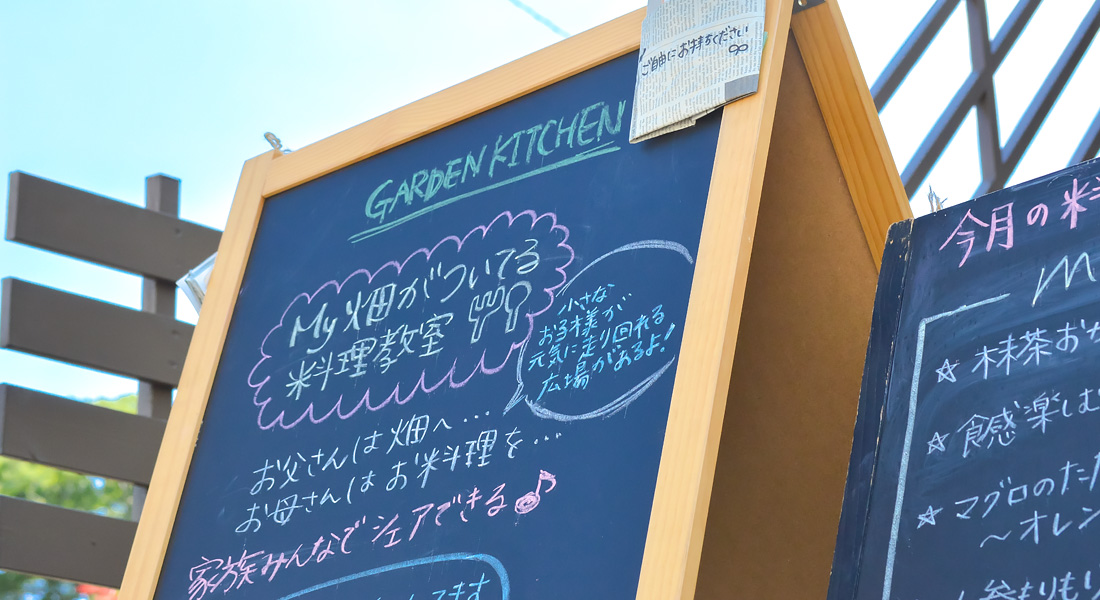 ご自由にお持ちください
GARDEN KITCHEN
My畑がついてる
料理教室
小さな
お子様が
元気に走り回れる
広場があるよ!
お父さんは畑へ…
お母さんはお料理を…
家族みんなでシェアできる♪
てます
今月の料
M
☆ 抹茶お
☆ 食感楽しむ
☆ マグロのたた
～オレン